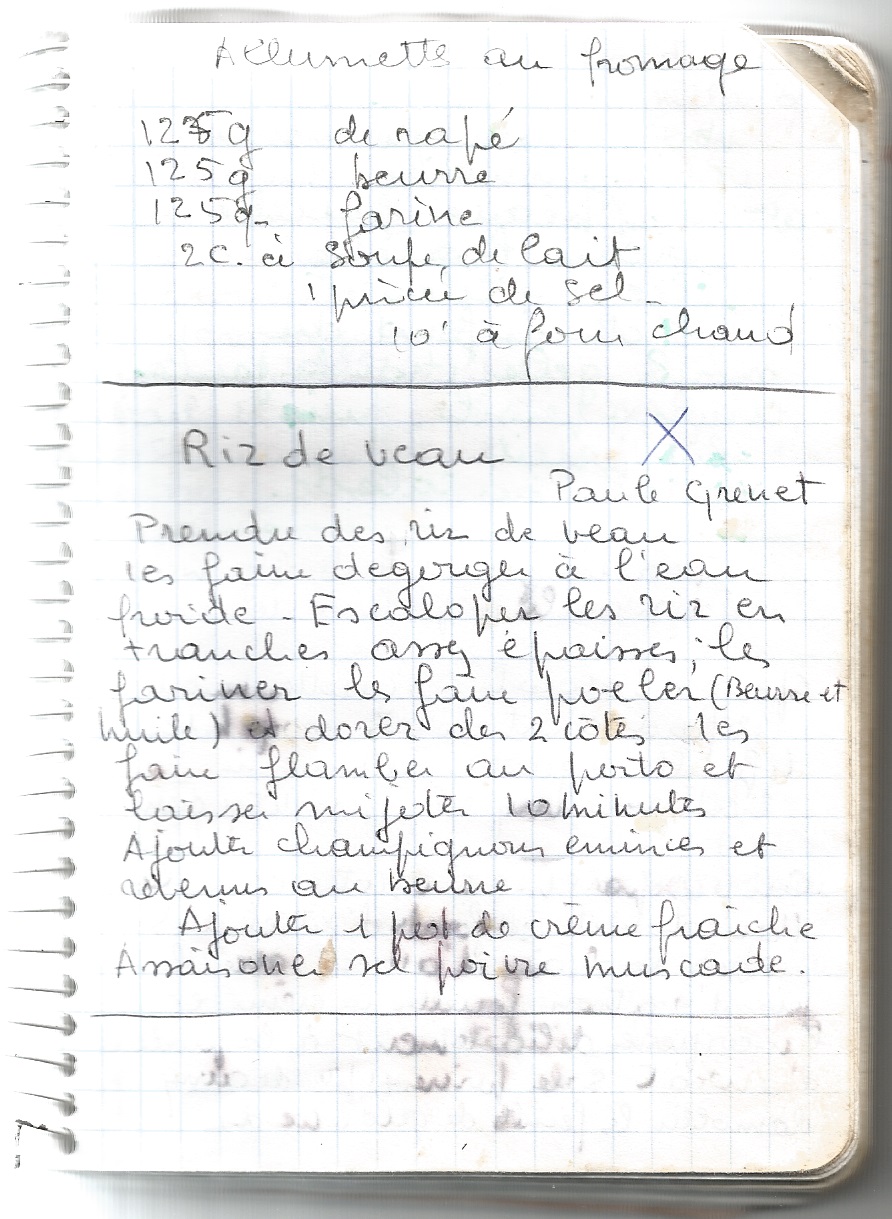 Allumettes au fromage
125g de rapé
125g beurre
125g farine
2c. à soupe de lait
1 pincée de sel -
10' à four chaud
Riz de veau X
Paule Grenet
Prendre des riz de veau
les faire degorger à l'eau
froide - Escaloper les riz en
tranches assez épaisses; les
fariner les faire poeler (Beurre et
huile) et dorer des 2 côtés les
faire flamber au porto et
laisser mijoter 10 minutes
Ajouter champignons emincés et
revenus au beurre
Ajouter 1 pot de crème fraîche
Assaisoner sel poivre muscade.